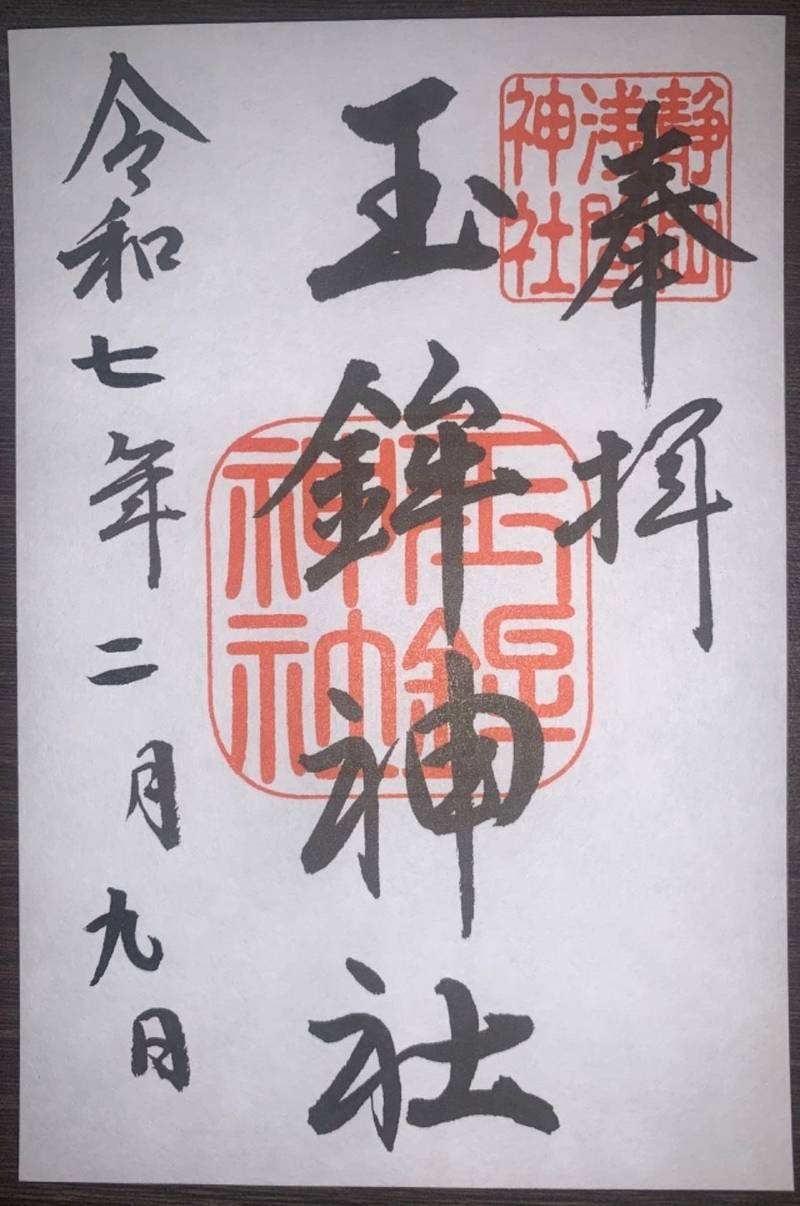 奉拝
静岡
浅間
神社
玉鉾神社
玉鉾
神社
令和七年二月九日